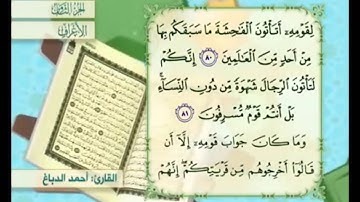 الجزء الثامن
الأعراف
لِقَوْمِهِۦٓ أَتَأْتُونَ ٱلْفَـٰحِشَةَ مَا سَبَقَكُم بِهَا
مِنْ أَحَدٍ مِّنَ ٱلْعَـٰلَمِينَ ٨٠ إِنَّكُمْ
لَتَأْتُونَ ٱلرِّجَالَ شَهْوَةً مِّن دُونِ ٱلنِّسَآءِ ۚ
بَلْ أَنتُمْ قَوْمٌ مُّسْرِفُونَ ٨١
وَمَا كَانَ جَوَابَ قَوْمِهِۦٓ إِلَّآ أَن
قَالُوٓا۟ أَخْرِجُوهُم مِّن قَرْيَتِكُمْ ۖ إِنَّهُمْ
القارئ: أحمد الدباغ